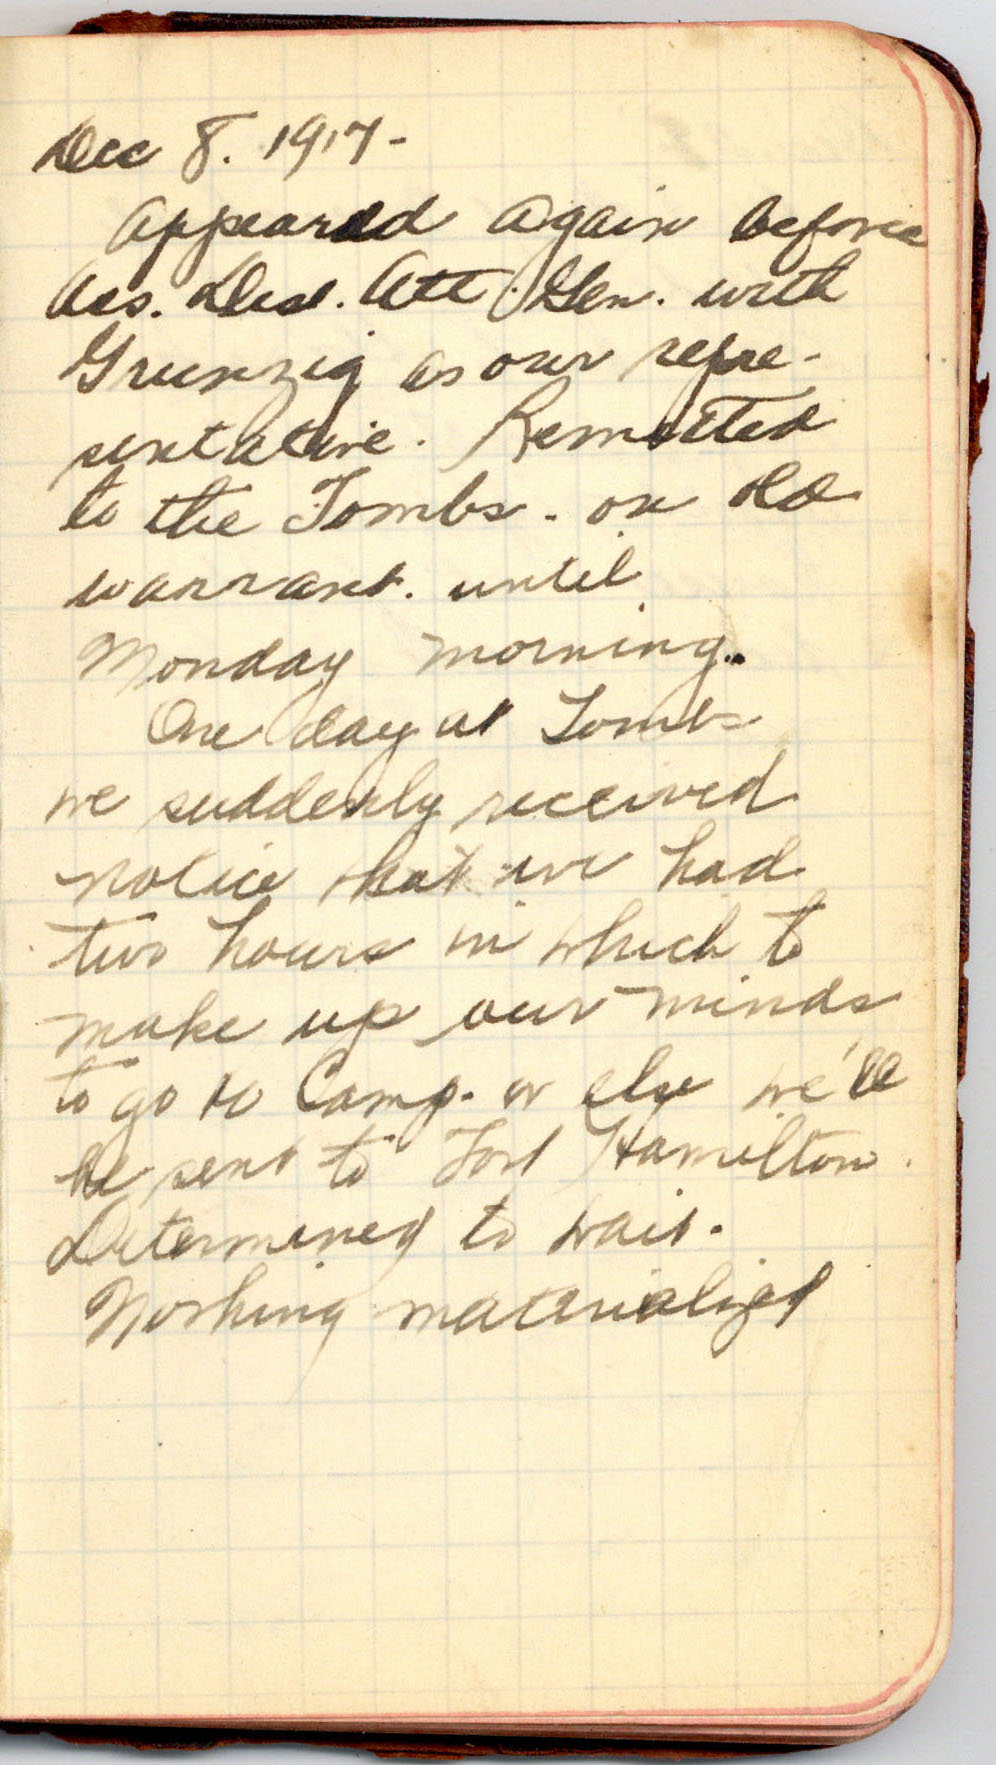 Dec 8. 1917-
Appeared again before
Ass. Dist. Att. Gen. with
Grunzig as our repre-
sentative. Remitted
to the Tombs. on old
warrant. until
Monday morning.
One day at Tombs
we suddenly received
notice that we had
two hours in which to
make up our minds
to go to Camp. or else we'll
be sent to Fort Hamilton.
Determined to wait.
Nothing materialized